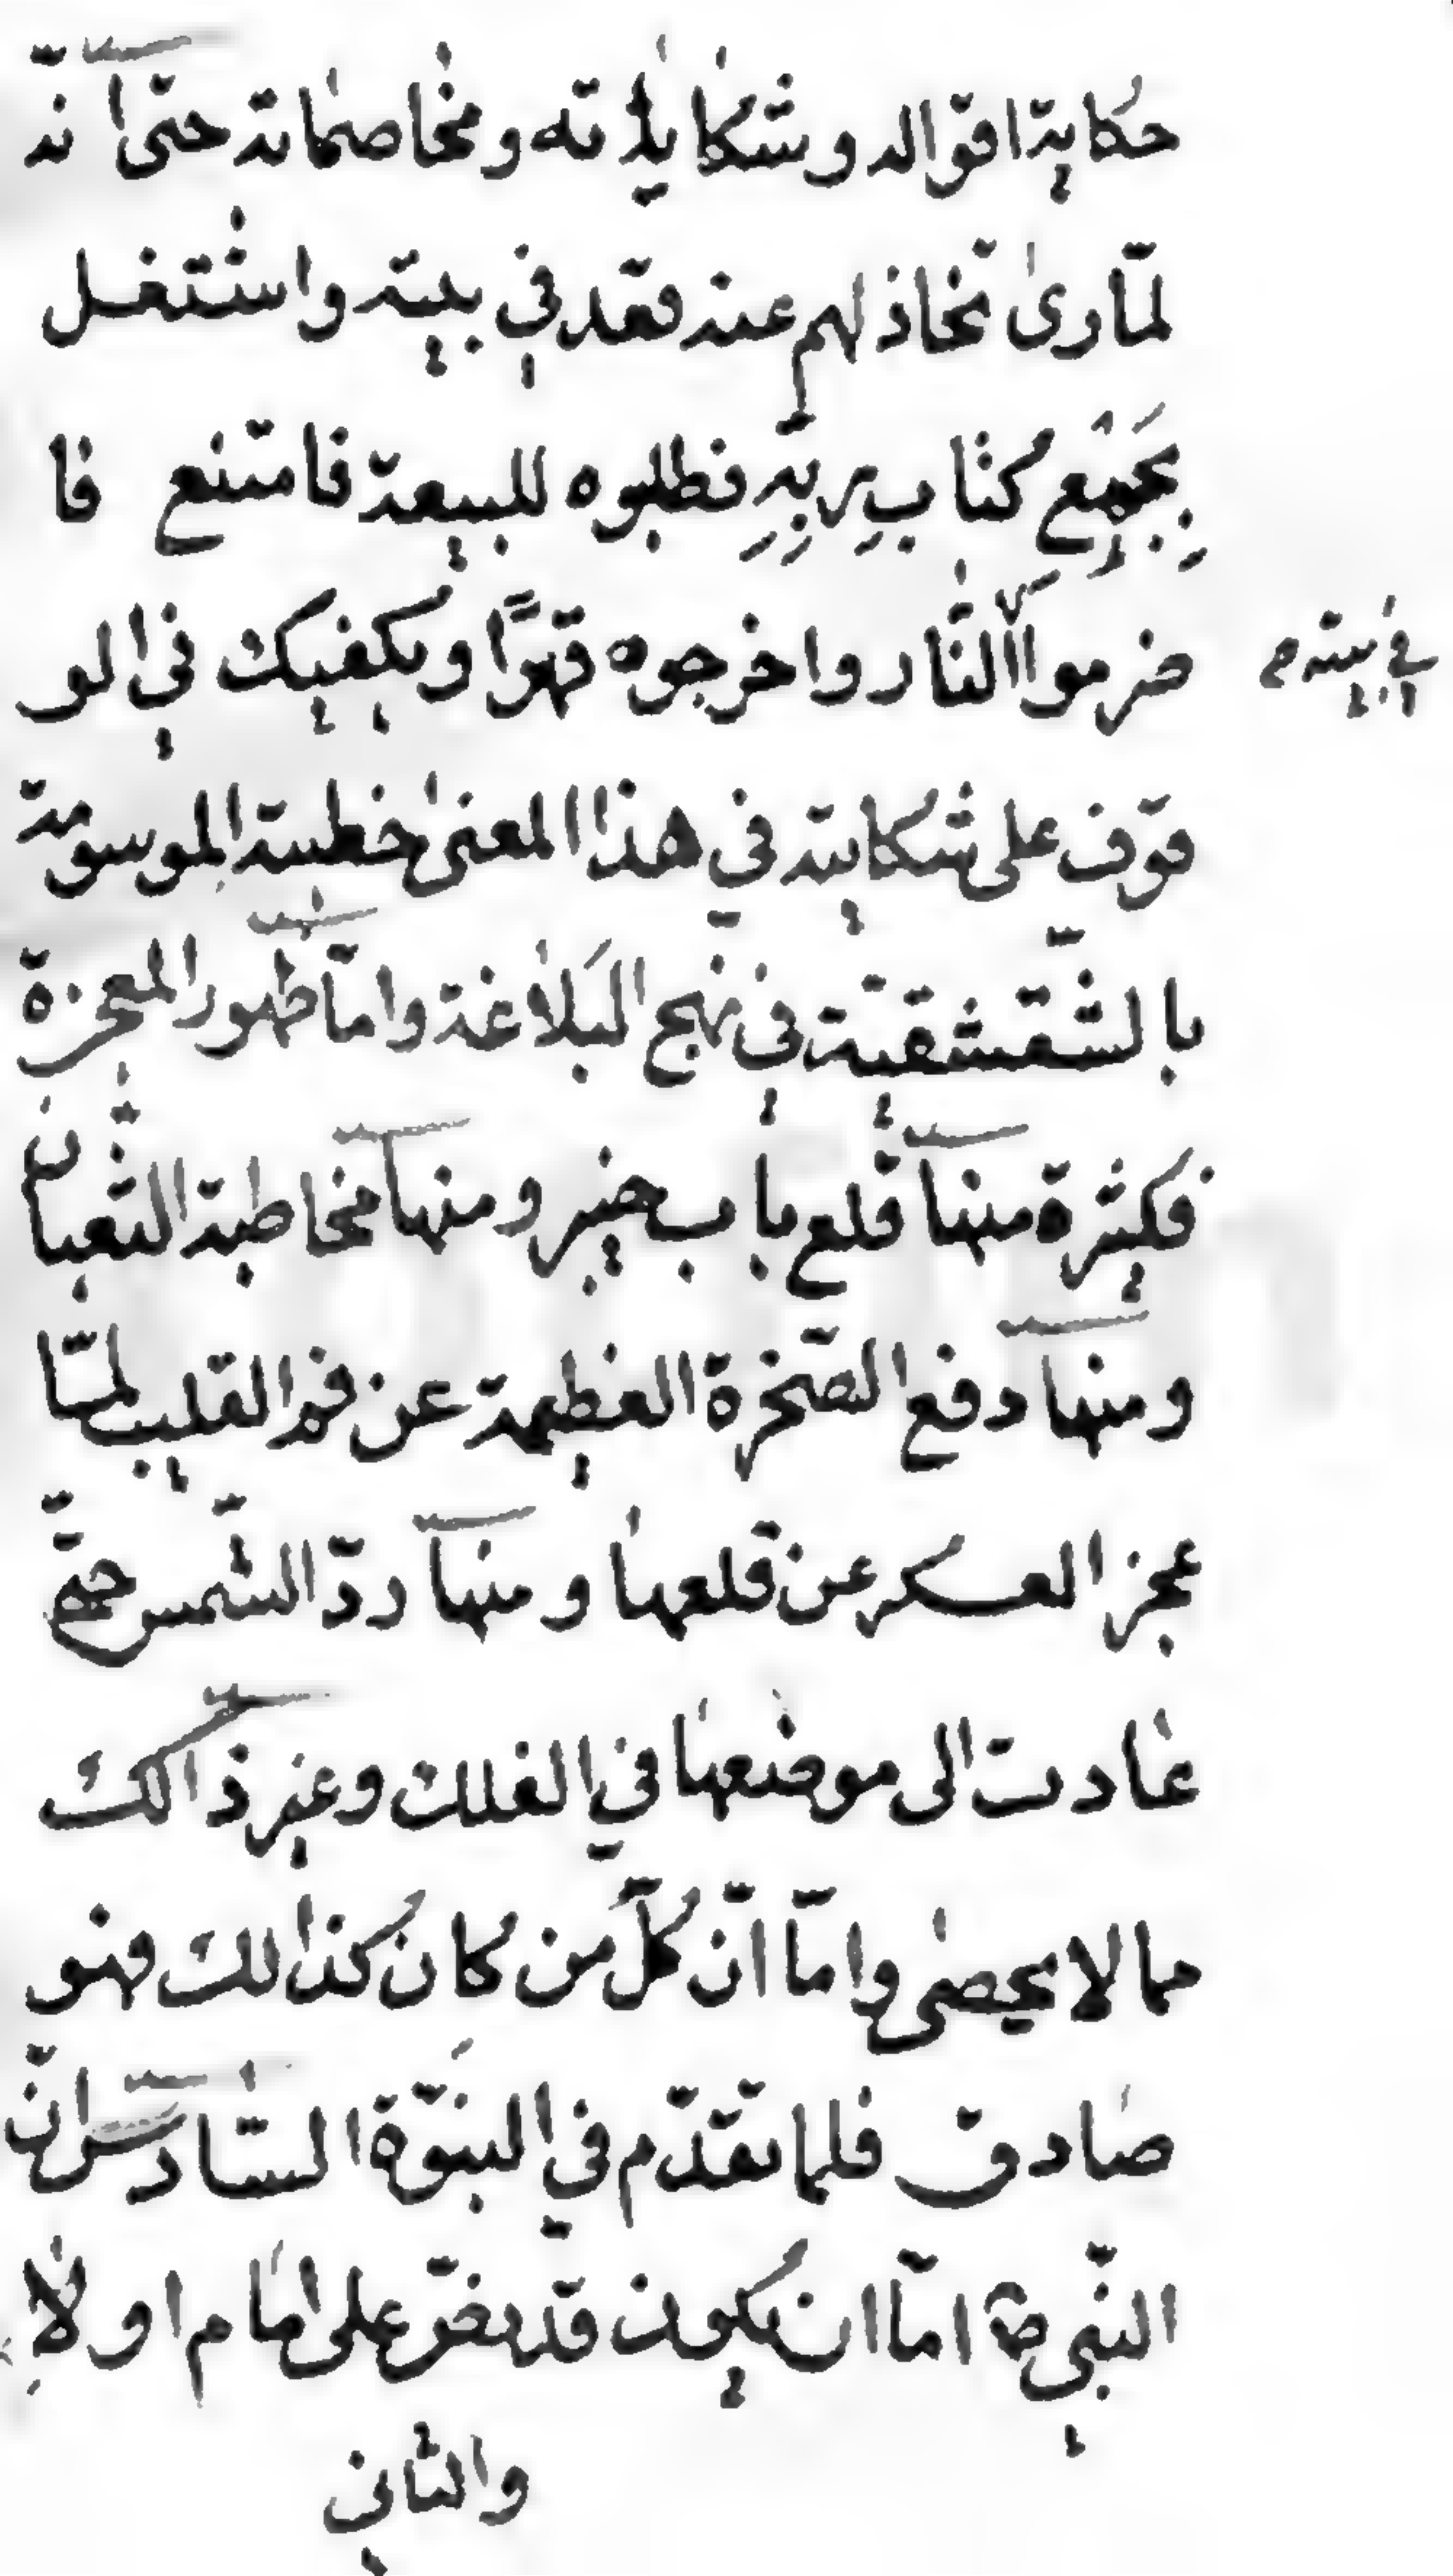 حكاية اقواله وشكاياته ومخاصماته حتى انه
لمّا رىٰ تخاذلهم عنه قعد في بيته واشتغل
بجَميع كتاب ربّهِ فطلبوه للبيعة فامتنع فا
ضرموا النّار واخرجوه قهرًا ويكفيك في الو
في بيته
قوف على شكايته في هذا المعنىٰ خطبته الموسومة
بالشّقشقيّة في نهج البَلاغة وامّا ظهور المعجزة
فكثيرة منها قلع باب خيبر ومنها مخاطبة الثعبان
ومنها دفع الصّخرة العظيمة عن فم القليب لمّا
عجز العسكر عن قلعها ومنها ردّ الشّمس حتّى
عادت الى موضعها في الفلك وغير ذالك
مما لا يحصىٰ وامّا انّ كلّ من كان كذالك فهو
صادق فلما تقدّم في النبوّة السّادس انّ
النّبي ص امّا ان يكون قد نصّ على امام او لا
والثاني